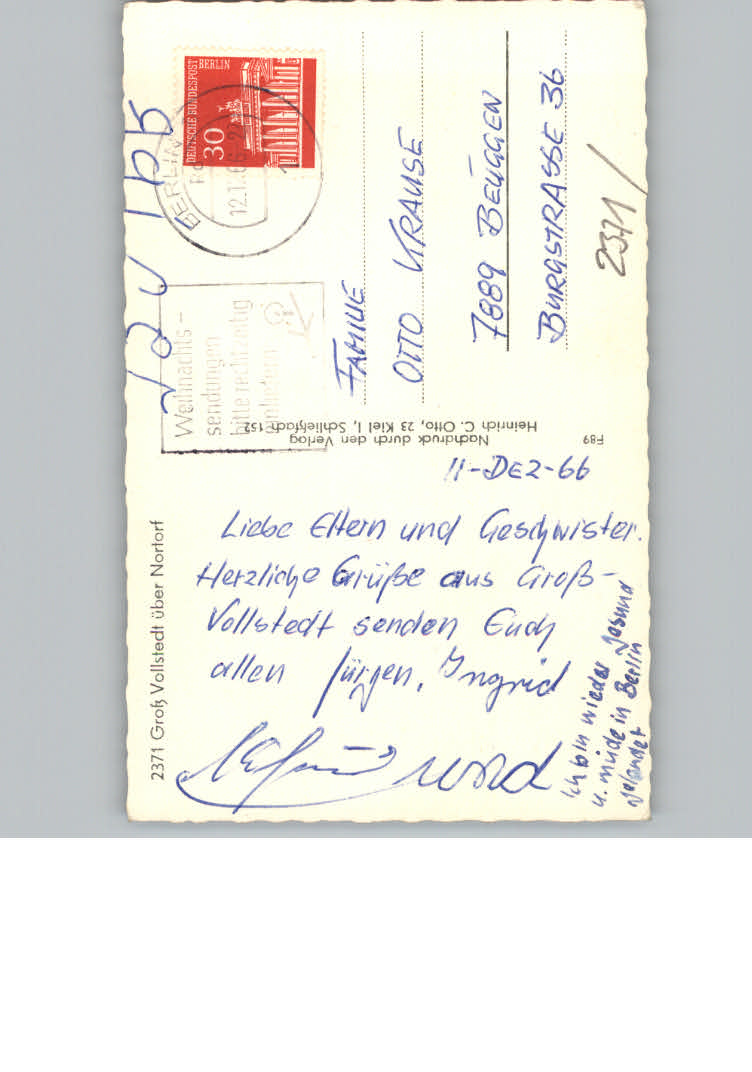 2371 Groß Vollstedt über Nortorf
11-DEZ-66
Liebe Eltern und Geschwister.
Herzliche Grüße aus Groß-
Vollstedt senden Euch
allen Jürgen, Ingrid
und
Ich bin wieder gesund
u. müde in Berlin
gelandet
F89
Nachdruck durch den Verlag
Heinrich C. Otto, 23 Kiel 1, Schließfach 152
DEUTSCHE BUNDESPOST BERLIN
30
BERLIN
12.12.66
Weihnachts-
sendungen
bitte rechtzeitig
einliefern
FAMILIE
OTTO KRAUSE
7889 BEUGGEN
BURGSTRASSE 36
2371/